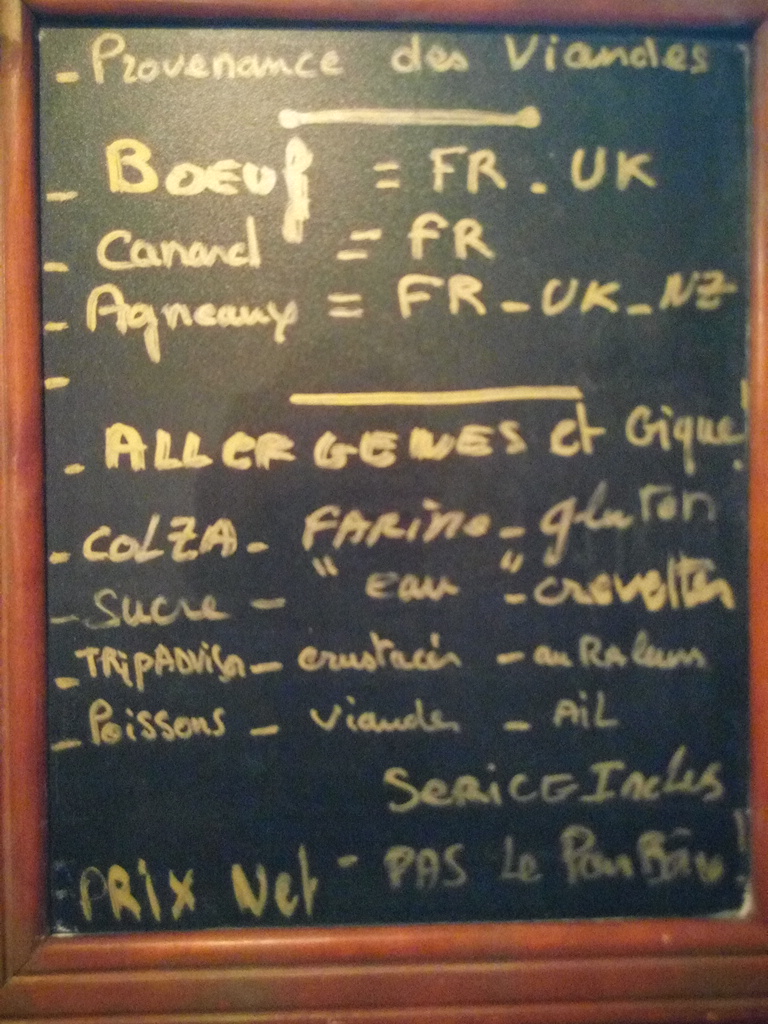 - Provenance des Viandes
- BOEUf = FR - UK
- Canard = FR
- Agneaux = FR - UK - NZ
-
- ALLERGENES et Gique!
- COLZA - FARine - gluten
- Sucre - "eau" - crevettes
- TRipADViSor - crustacés - au Raleurs
- Poissons - Viandes - AiL
SeRiCE Inclus
PRIX Net - PAS Le